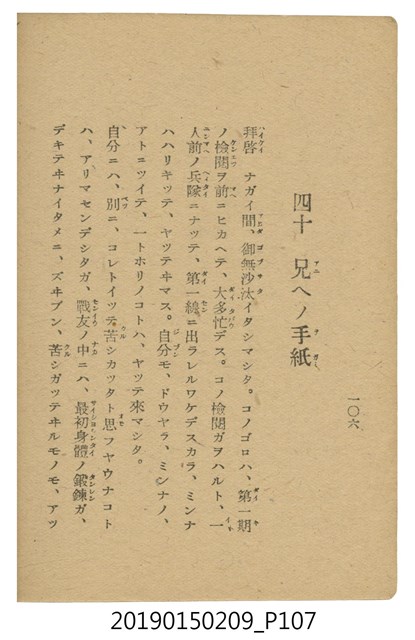 一〇六
四十　兄ヘノ手紙
拜啓　ナガイ間、御無沙汰イタシマシタ。コノゴロハ、第一期
ノ檢閲ヲ前ニヒカヘテ、大多忙デス。コノ檢閲ガヲハルト、一
人前ノ兵隊ニナッテ、第一線ニ出ラレルワケデスカラ、ミンナ
ハハリキッテ、ヤッテヰマス。自分モ、ドウヤラ、ミンナノ、
アトニツイテ、一トホリノコトハ、ヤッテ來マシタ。
自分ニハ、別ニ、コレトイッテ苦シカッタト思フヤウナコト
ハ、アリマセンデシタガ、戰友ノ中ニハ、最初身體ノ鍛鍊ガ、
デキテヰナイタメニ、ズヰブン、苦シガッテヰルモノモ、アッ
20190150209_P107